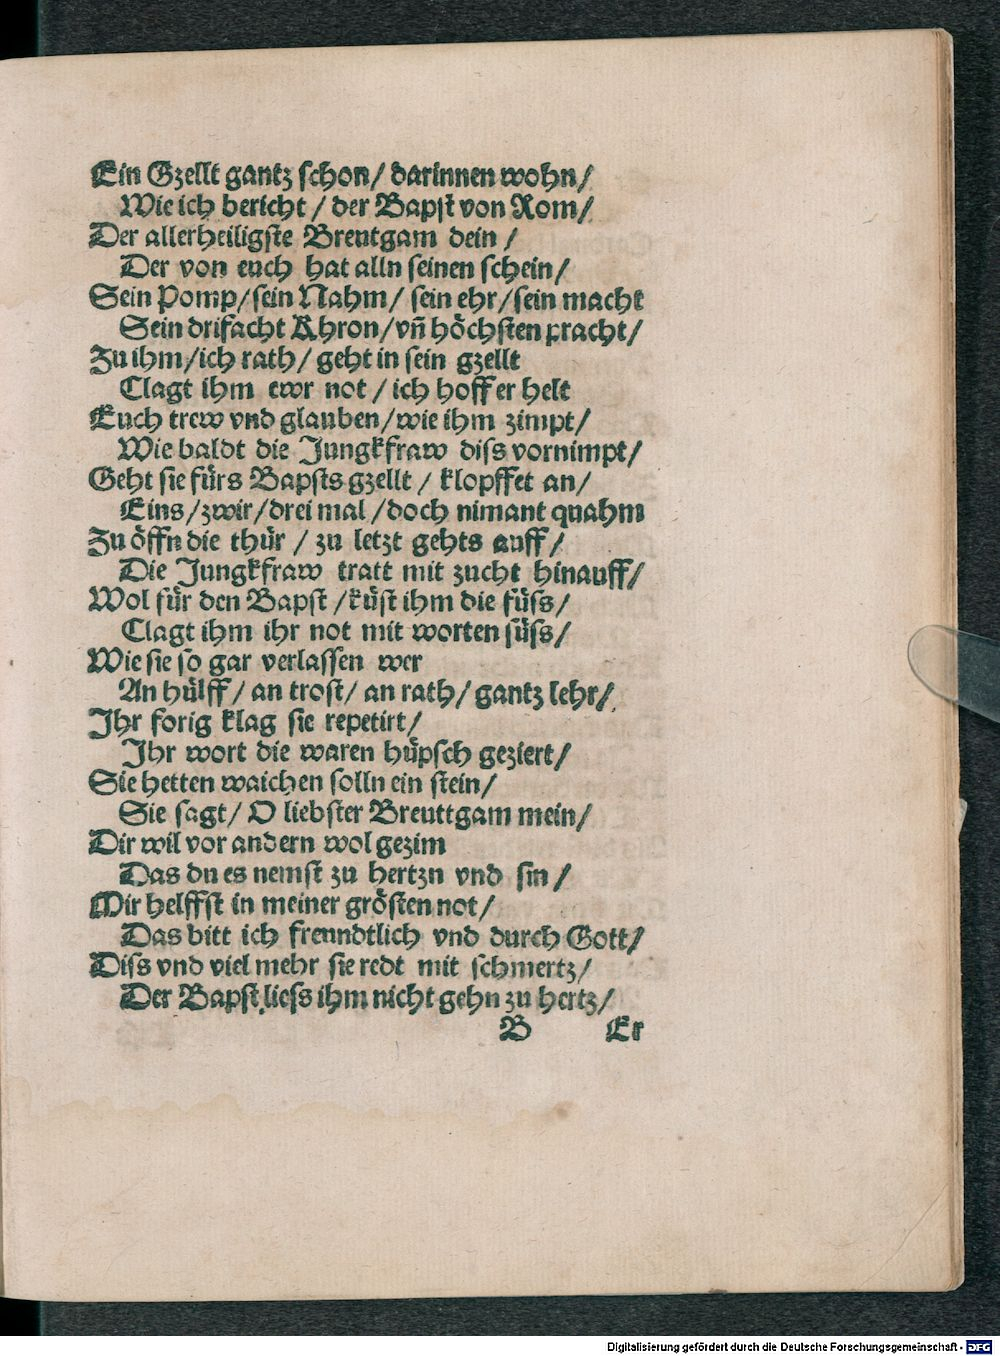 Ein Gzellt gantz schon/ darinnen wohn/
Wie ich bericht/ der Bapst von Rom/
Der allerheiligste Breutgam dein/
Der von euch hat alln seinen schein/
Sein Pomp/ sein Nahm/ sein ehr/ sein macht
Sein drifacht Khron/ vñ höchsten pracht/
Zu ihm/ ich rath/ geht in sein gzellt
Clagt ihm ewr not/ ich hoff er helt
Euch trew vnd glauben/ wie ihm zimpt/
Wie baldt die Jungkfraw diss vornimpt/
Geht sie fürs Bapsts gzellt/ klopffet an/
Eins/ zwir/ drei mal/ doch nimant quahm
Zu öffn die thür/ zu letzt gehts auff/
Die Jungkfraw tratt mit zucht hinauff/
Wol für den Bapst/ küst ihm die füss/
Clagt ihm ihr not mit worten süss/
Wie sie so gar verlassen wer
An hülff/ an trost/ an rath/ gantz lehr/
Jhr forig klag sie repetirt/
Jhr wort die waren hüpsch geziert/
Sie hetten waichen solln ein stein/
Sie sagt/ O liebster Breuttgam mein/
Dir wil vor andern wol gezim
Das du es nemst zu hertzn vnd sin/
Mir helffst in meiner grösten not/
Das bitt ich freundtlich vnd durch Gott/
Diss vnd viel mehr sie redt mit schmertz/
Der Bapst liess ihm nicht gehn zu hertz/
B Er
Digitalisierung gefördert durch die Deutsche Forschungsgemeinschaft - DFG